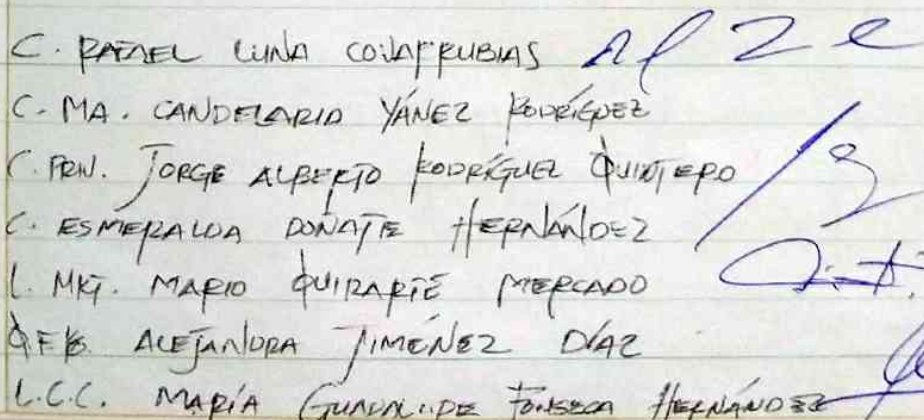 C. RAFAEL LUNA COVARRUBIAS
C. MA. CANDELARIA YÁNEZ RODRÍGUEZ
C. PRN. JORGE ALBERTO RODRÍGUEZ QUINTERO
C. ESMERALDA DOÑATE HERNÁNDEZ
L. MKT. MARIO QUIRARTE MERCADO
Q.F.B. ALEJANDRA JIMENEZ DÍAZ
L.C.C. MARÍA GUADALUPE FONSECA HERNÁNDEZ